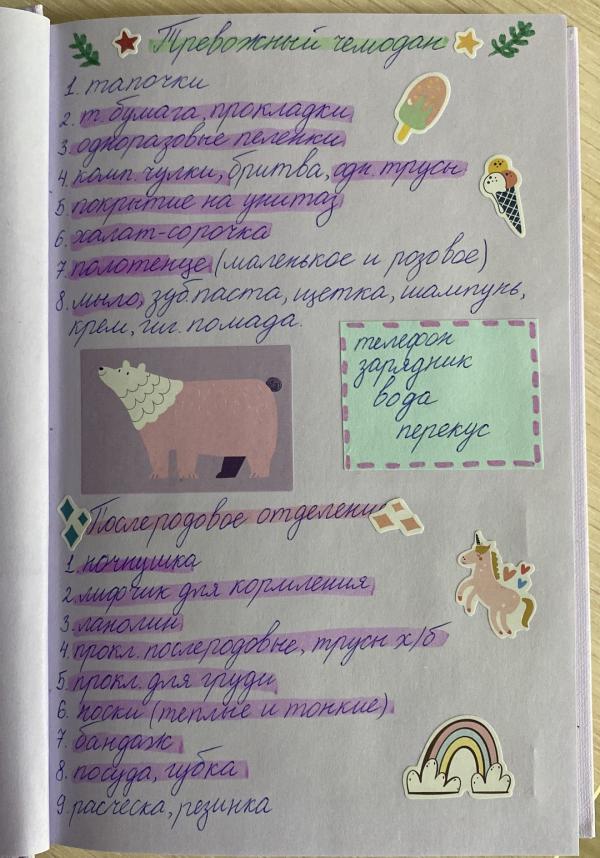 Тревожный чемодан
1. тапочки
2. т. бумага, прокладки
3. одноразовые пеленки
4. комп. чулки, бритва, одн. трусы
5. покрытие на унитаз
6. халат-сорочка
7. полотенце (маленькое и розовое)
8. мыло, зуб паста, щетка, шампунь,
крем, гиг. помада.
телефон
зарядник
вода
перекус
Послеродовое отделение
1. ночнушка
2. лифчик для кормления
3. ланолин
4. прокл. послеродовые, трусы х/б
5. прокл. для груди
6. носки (теплые и тонкие)
7. бандаж
8. посуда, губка
9. расческа, резинка